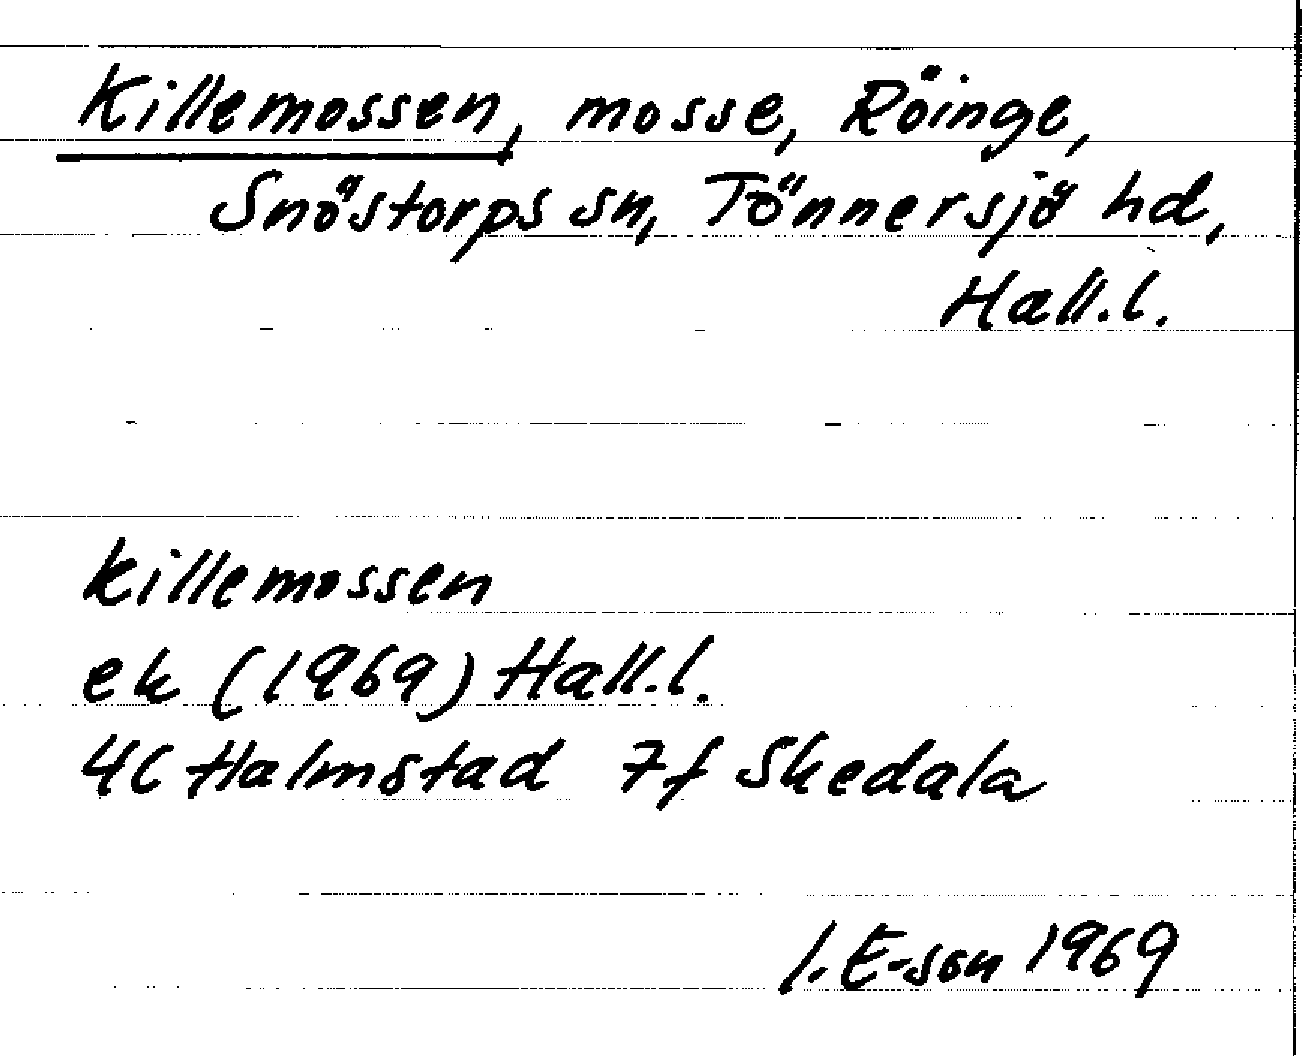 Killemossen, mosse, Röinge,
Snöstorps sn, Tönnersjö hd,
Hall.l.
Killemossen
ek (1969) Hall.l.
4C Halmstad 7f Skedala
I. E-son 1969